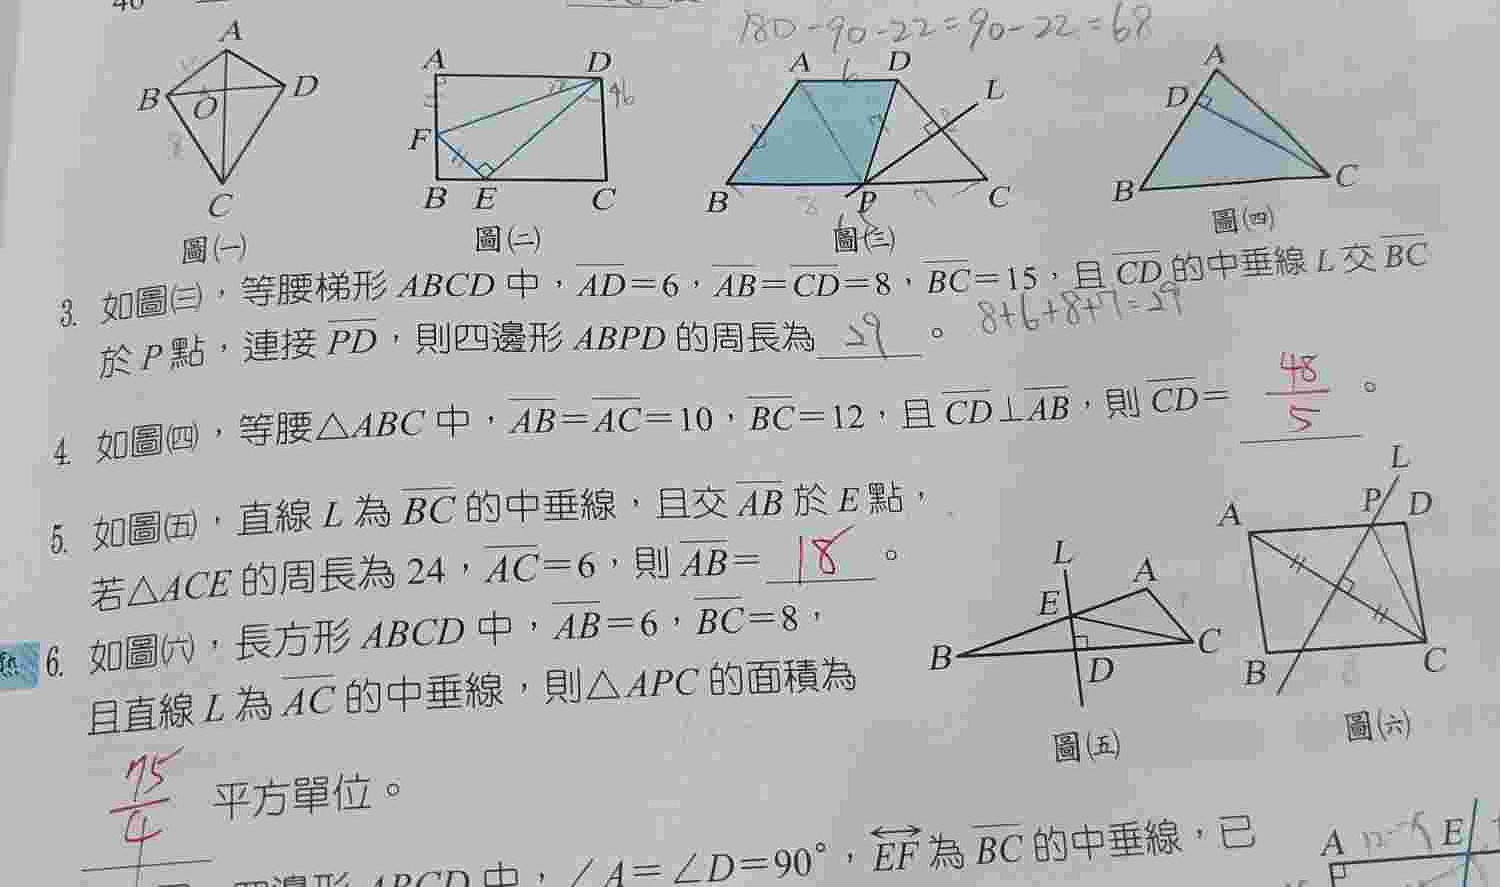 180-90-22=90-22=68
A
B
O
D
C
圖(一)
A
D
46
F
B
E
C
圖(二)
A
6
D
L
B
8
P
7
C
圖(三)
A
D
B
C
圖(四)
3. 如圖(三)，等腰梯形 ABCD 中，AD=6，AB=CD=8，BC=15，且 CD 的中垂線 L 交 BC
於 P 點，連接 PD，則四邊形 ABPD 的周長為 29 。 8+6+8+7=29
4. 如圖(四)，等腰△ABC 中，AB=AC=10，BC=12，且 CD⊥AB，則 CD= 48/5 。
5. 如圖(五)，直線 L 為 BC 的中垂線，且交 AB 於 E 點，
若△ACE 的周長為 24，AC=6，則 AB= 18 。
6. 如圖(六)，長方形 ABCD 中，AB=6，BC=8，
且直線 L 為 AC 的中垂線，則△APC 的面積為
75/4 平方單位。
L
E
A
B
D
C
圖(五)
L
A
P
D
B
C
圖(六)
四邊形 ABCD 中，∠A=∠D=90°，EF 為 BC 的中垂線，已
A
E